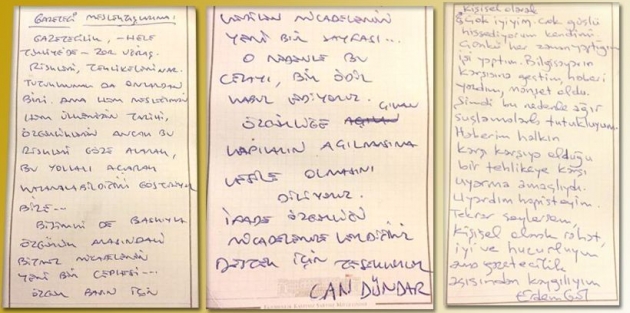 GAZETECİ MESLEKTAŞLARIMA:
GAZETECİLİK, - HELE
TÜRKİYE'DE - ZOR UĞRAŞ.
RİSKLERİ, TEHLİKELERİ VAR.
TUTUKLANMA DA ONLARDAN
BİRİ. AMA HEM MESLEĞİMİN
HEM ÜLKEMİZİN TARİHİ,
ÖZGÜRLÜKLERİN ANCAK BU
RİSKLERİ GÖZE ALARAK,
BU YOLLARI AÇARAK
KAZANILABİLDİĞİNİ GÖSTERİYOR
BİZE...
BİZİMKİ DE BASKIYLA
ÖZGÜRLÜK ARASINDAKİ
BİTMEZ MÜCADELENİN
YENİ BİR CEPHESİ...
ÖZGÜR BASIN İÇİN
VERİLEN MÜCADELENİN
YENİ BİR SAYFASI...
O NEDENLE BU
CEZAYI, BİR ÖDÜL
KABUL EDİYORUZ.
ÖZGÜRLÜĞE ÇIKAN
KAPILARIN AÇILMASINA
VESİLE OLMASINI
DİLİYORUZ.
İFADE ÖZGÜRLÜĞÜ
MÜCADELEMİZE VERDİĞİNİZ
DESTEK İÇİN TEŞEKKÜRLER
CAN DÜNDAR
Kişisel olarak
çok iyiyim. Çok güçlü
hissediyorum kendimi.
Çünkü her zaman yaptığım
işi yaptım. Bilgisayarın
karşısına geçtim, haberi
yazdım, manşet oldu.
Şimdi bu nedenle ağır
suçlamalarla tutukluyum.
Haberim halkın
karşı karşıya olduğu
bir tehlikeye karşı
uyarma amaçlıydı.
Uyardım hapisteyim.
Tekrar söylersem,
kişisel olarak rahat,
iyi ve huzurluyum
ama gazetecilik
açısından kaygılıyım
Erdem Gül